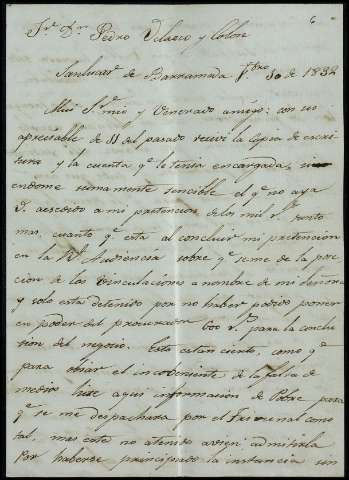 6
Sr. Dn. Pedro Velasco y Colon
Sanlucar de Barrameda bre 30 de 1832
Mui Sr. mio y Venerado amigo: con su
apreciable de 11 del pasado recivi la copia de escri
tura y la cuenta qe. le tenia encargada, si
endome sumamente sencible el qe. no aya
V. acsedido a mi pretencion de los mil rs. tanto
mas, cuanto qe. esta al concluir mi pretencion
en la Rl. Audiencia sobre qe. seme de la poce
cion de las vinculaciones a nombre de mi Señora
y solo esta detenido por no haber podido poner
en poder del procurador 600 rs. para la conclu
sion del negocio. Esto es tan cierto, como qe.
para obiar el incombeniente de la falta de
medios hise aqui informacion de Pobre para
qe. se me despachara por el Tribunal como
tal, mas este no atenido a vien admitirla
Por haberse principiado la instancia sin